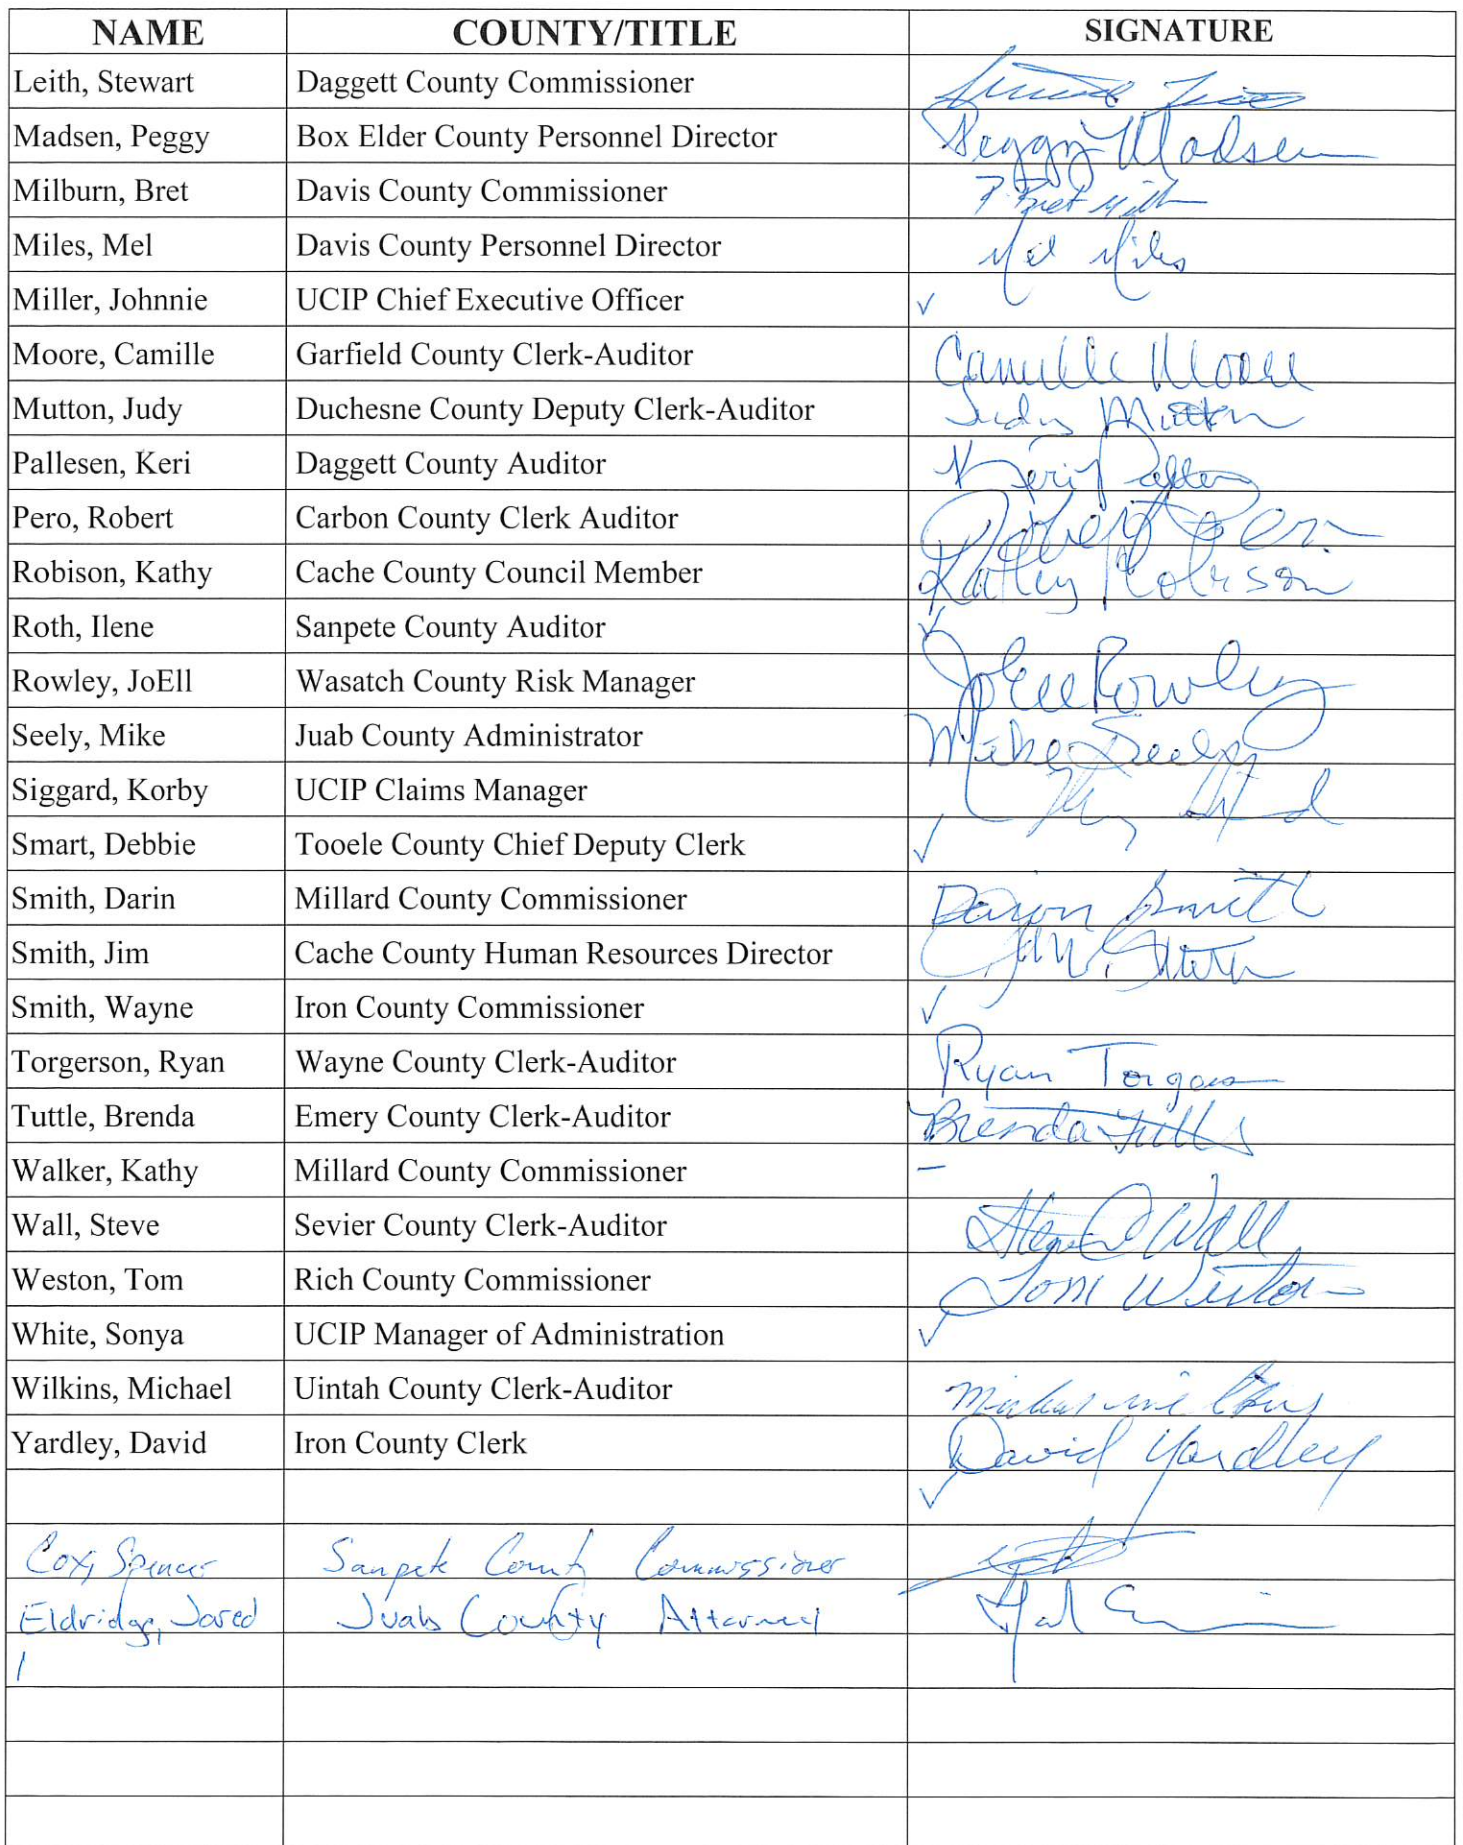 NAME COUNTY/TITLE SIGNATURE
Leith, Stewart Daggett County Commissioner
Madsen, Peggy Box Elder County Personnel Director Peggy Madsen
Milburn, Bret Davis County Commissioner P. Bret Milb
Miles, Mel Davis County Personnel Director Mel Miles
Miller, Johnnie UCIP Chief Executive Officer ✓
Moore, Camille Garfield County Clerk-Auditor Camille Moore
Mutton, Judy Duchesne County Deputy Clerk-Auditor Judy Mutton
Pallesen, Keri Daggett County Auditor Keri Pallesen
Pero, Robert Carbon County Clerk Auditor Robert Pero
Robison, Kathy Cache County Council Member Kathy Robison
Roth, Ilene Sanpete County Auditor ✓
Rowley, JoEll Wasatch County Risk Manager JoEll Rowley
Seely, Mike Juab County Administrator Mike Seely
Siggard, Korby UCIP Claims Manager
Smart, Debbie Tooele County Chief Deputy Clerk ✓
Smith, Darin Millard County Commissioner Darin Smith
Smith, Jim Cache County Human Resources Director
Smith, Wayne Iron County Commissioner ✓
Torgerson, Ryan Wayne County Clerk-Auditor Ryan Torgerson
Tuttle, Brenda Emery County Clerk-Auditor Brenda Tuttle
Walker, Kathy Millard County Commissioner –
Wall, Steve Sevier County Clerk-Auditor Steven C Wall
Weston, Tom Rich County Commissioner Tom Weston
White, Sonya UCIP Manager of Administration ✓
Wilkins, Michael Uintah County Clerk-Auditor Michael Wilkins
Yardley, David Iron County Clerk David Yardley
✓
Cox, Spencer Sanpete County Commissioner
Eldridge, Jared Juab County Attorney